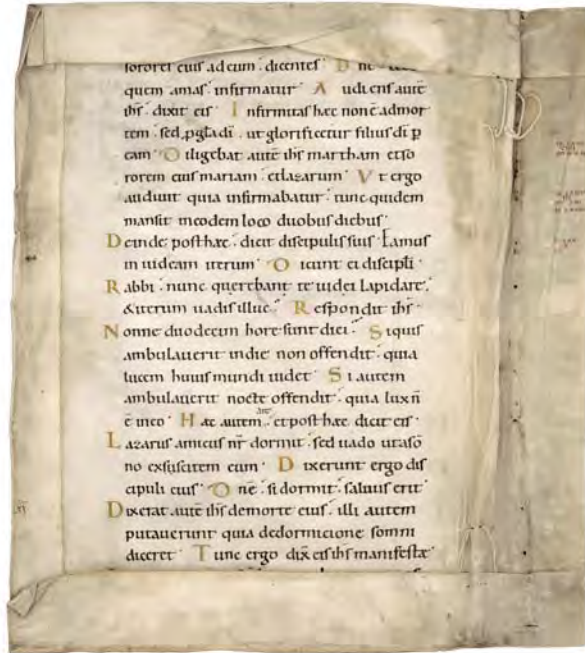 sorores eius ad eum . dicentes D ne
quem amas infirmatur A udiens autē
ihs . dixit eis I nfirmitas hęc non ē ad mor
tem . sed ꝓ gl̄a dī . ut glorificetur filius dī p
eam O iligebat autē ihs martham et so
rorem eius mariam . et lazarum V t ergo
audiuit quia infirmabatur . tunc quidem
mansit in eodem loco duobus diebus
D einde post hęc . dicit discipulis suis . Eamus
in iudeam iterum O icunt ei discipłi
R abbi . nunc querebant te iudei lapidare .
& iterum uadis illuc . R espondit ihs
N onne duodecim horę sunt diei . S i quis
ambulauerit in die non offendit . quia
lucem huius mundi uidet S i autem
ambulauerit nocte offendit . quia lux n̄
ē in eo H ęc autem . et post hęc dicit eis
L azarus amicus nr̄ dormit . sed uado ut a sō
no exsuscitem eum D ixerunt ergo dis
cipuli eius O nē . si dormit . saluus erit
D ixerat autē ihs de morte eius . illi autem
putauerunt quia de dormicione somni
diceret T unc ergo dix̄ eis ihs manifestę